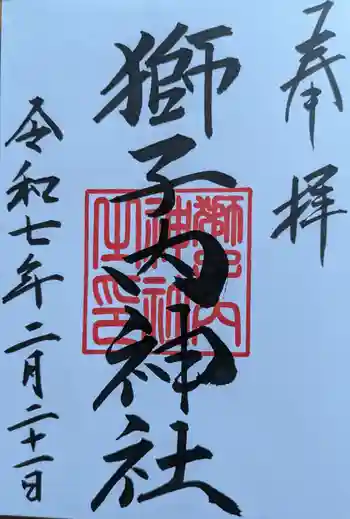 奉拝
獅子内神社
令和七年二月二十一日
獅子内
神社
之印